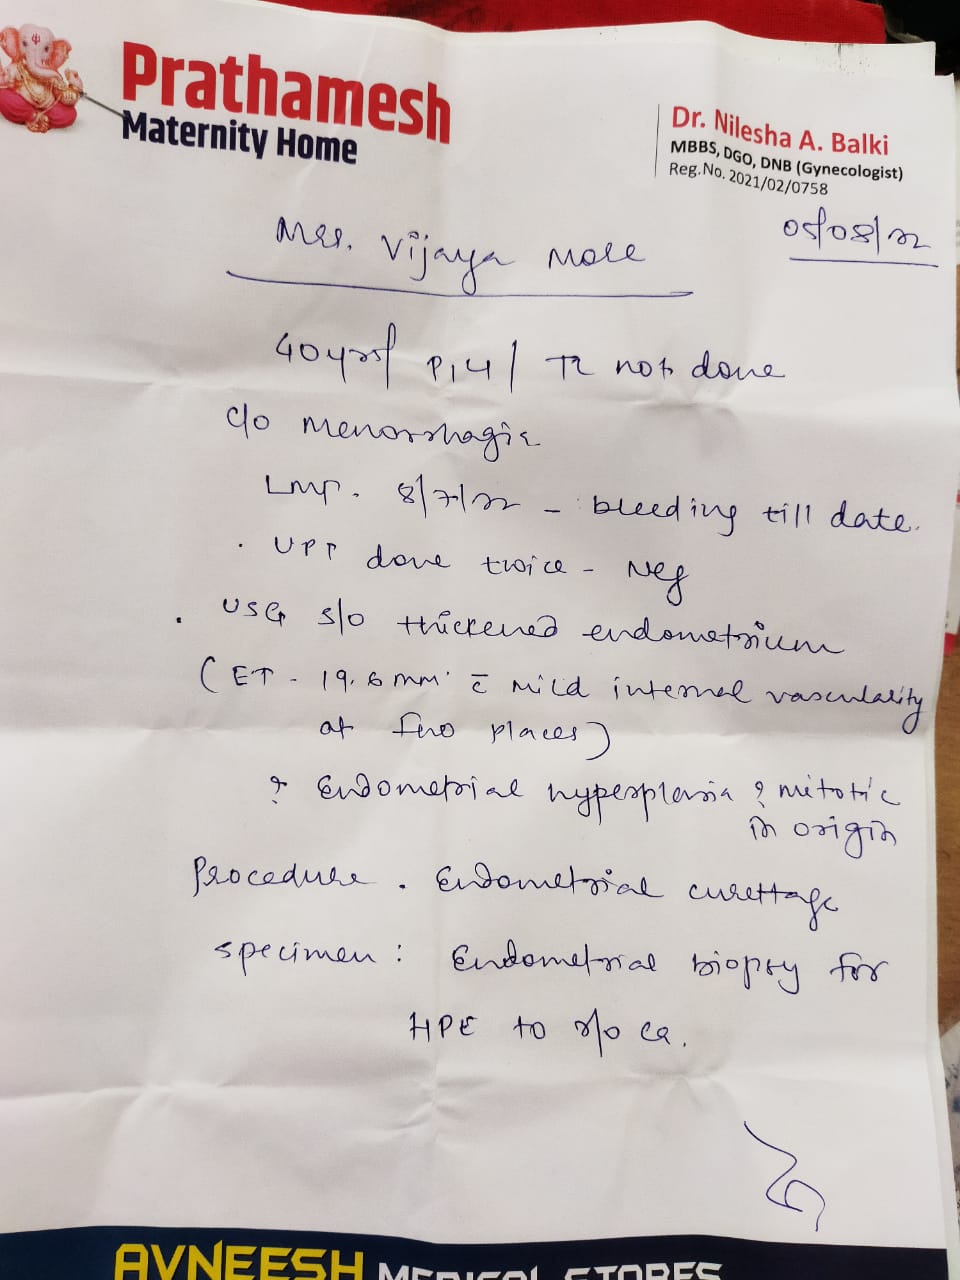 Prathamesh
Maternity Home
Dr. Nilesha A. Balki
MBBS, DGO, DNB (Gynecologist)
Reg.No. 2021/02/0758
05/08/22
Mrs. Vijaya More
40yrs/ P1L1/ TL not done
c/o Menorrhagia
LMP. 8/7/22 - bleeding till date.
. UPT done twice - Neg
. USG s/o thickened endometrium
(ET - 19.6 mm. c̄ mild internal vascularity
at few places)
? Endometrial hyperplasia ? mitotic
in origin
Procedure . Endometrial curettage
specimen : Endometrial biopsy for
HPE to r/o ca.
AVNEESH MEDICAL STORES